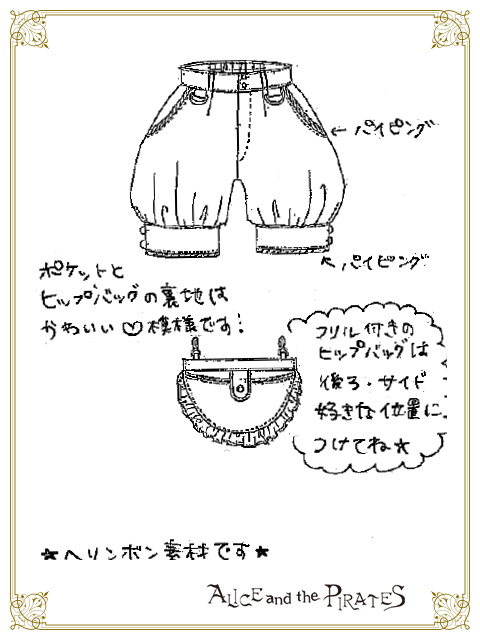 ← パイピング
↖ パイピング
ポケットと
ヒップバッグの裏地は
かわいい♡模様です!
フリル付きの
ヒップバッグは
後ろ・サイド
好きな位置に
つけてね★
★ヘリンボン素材です★
ALICE and the PIRATES